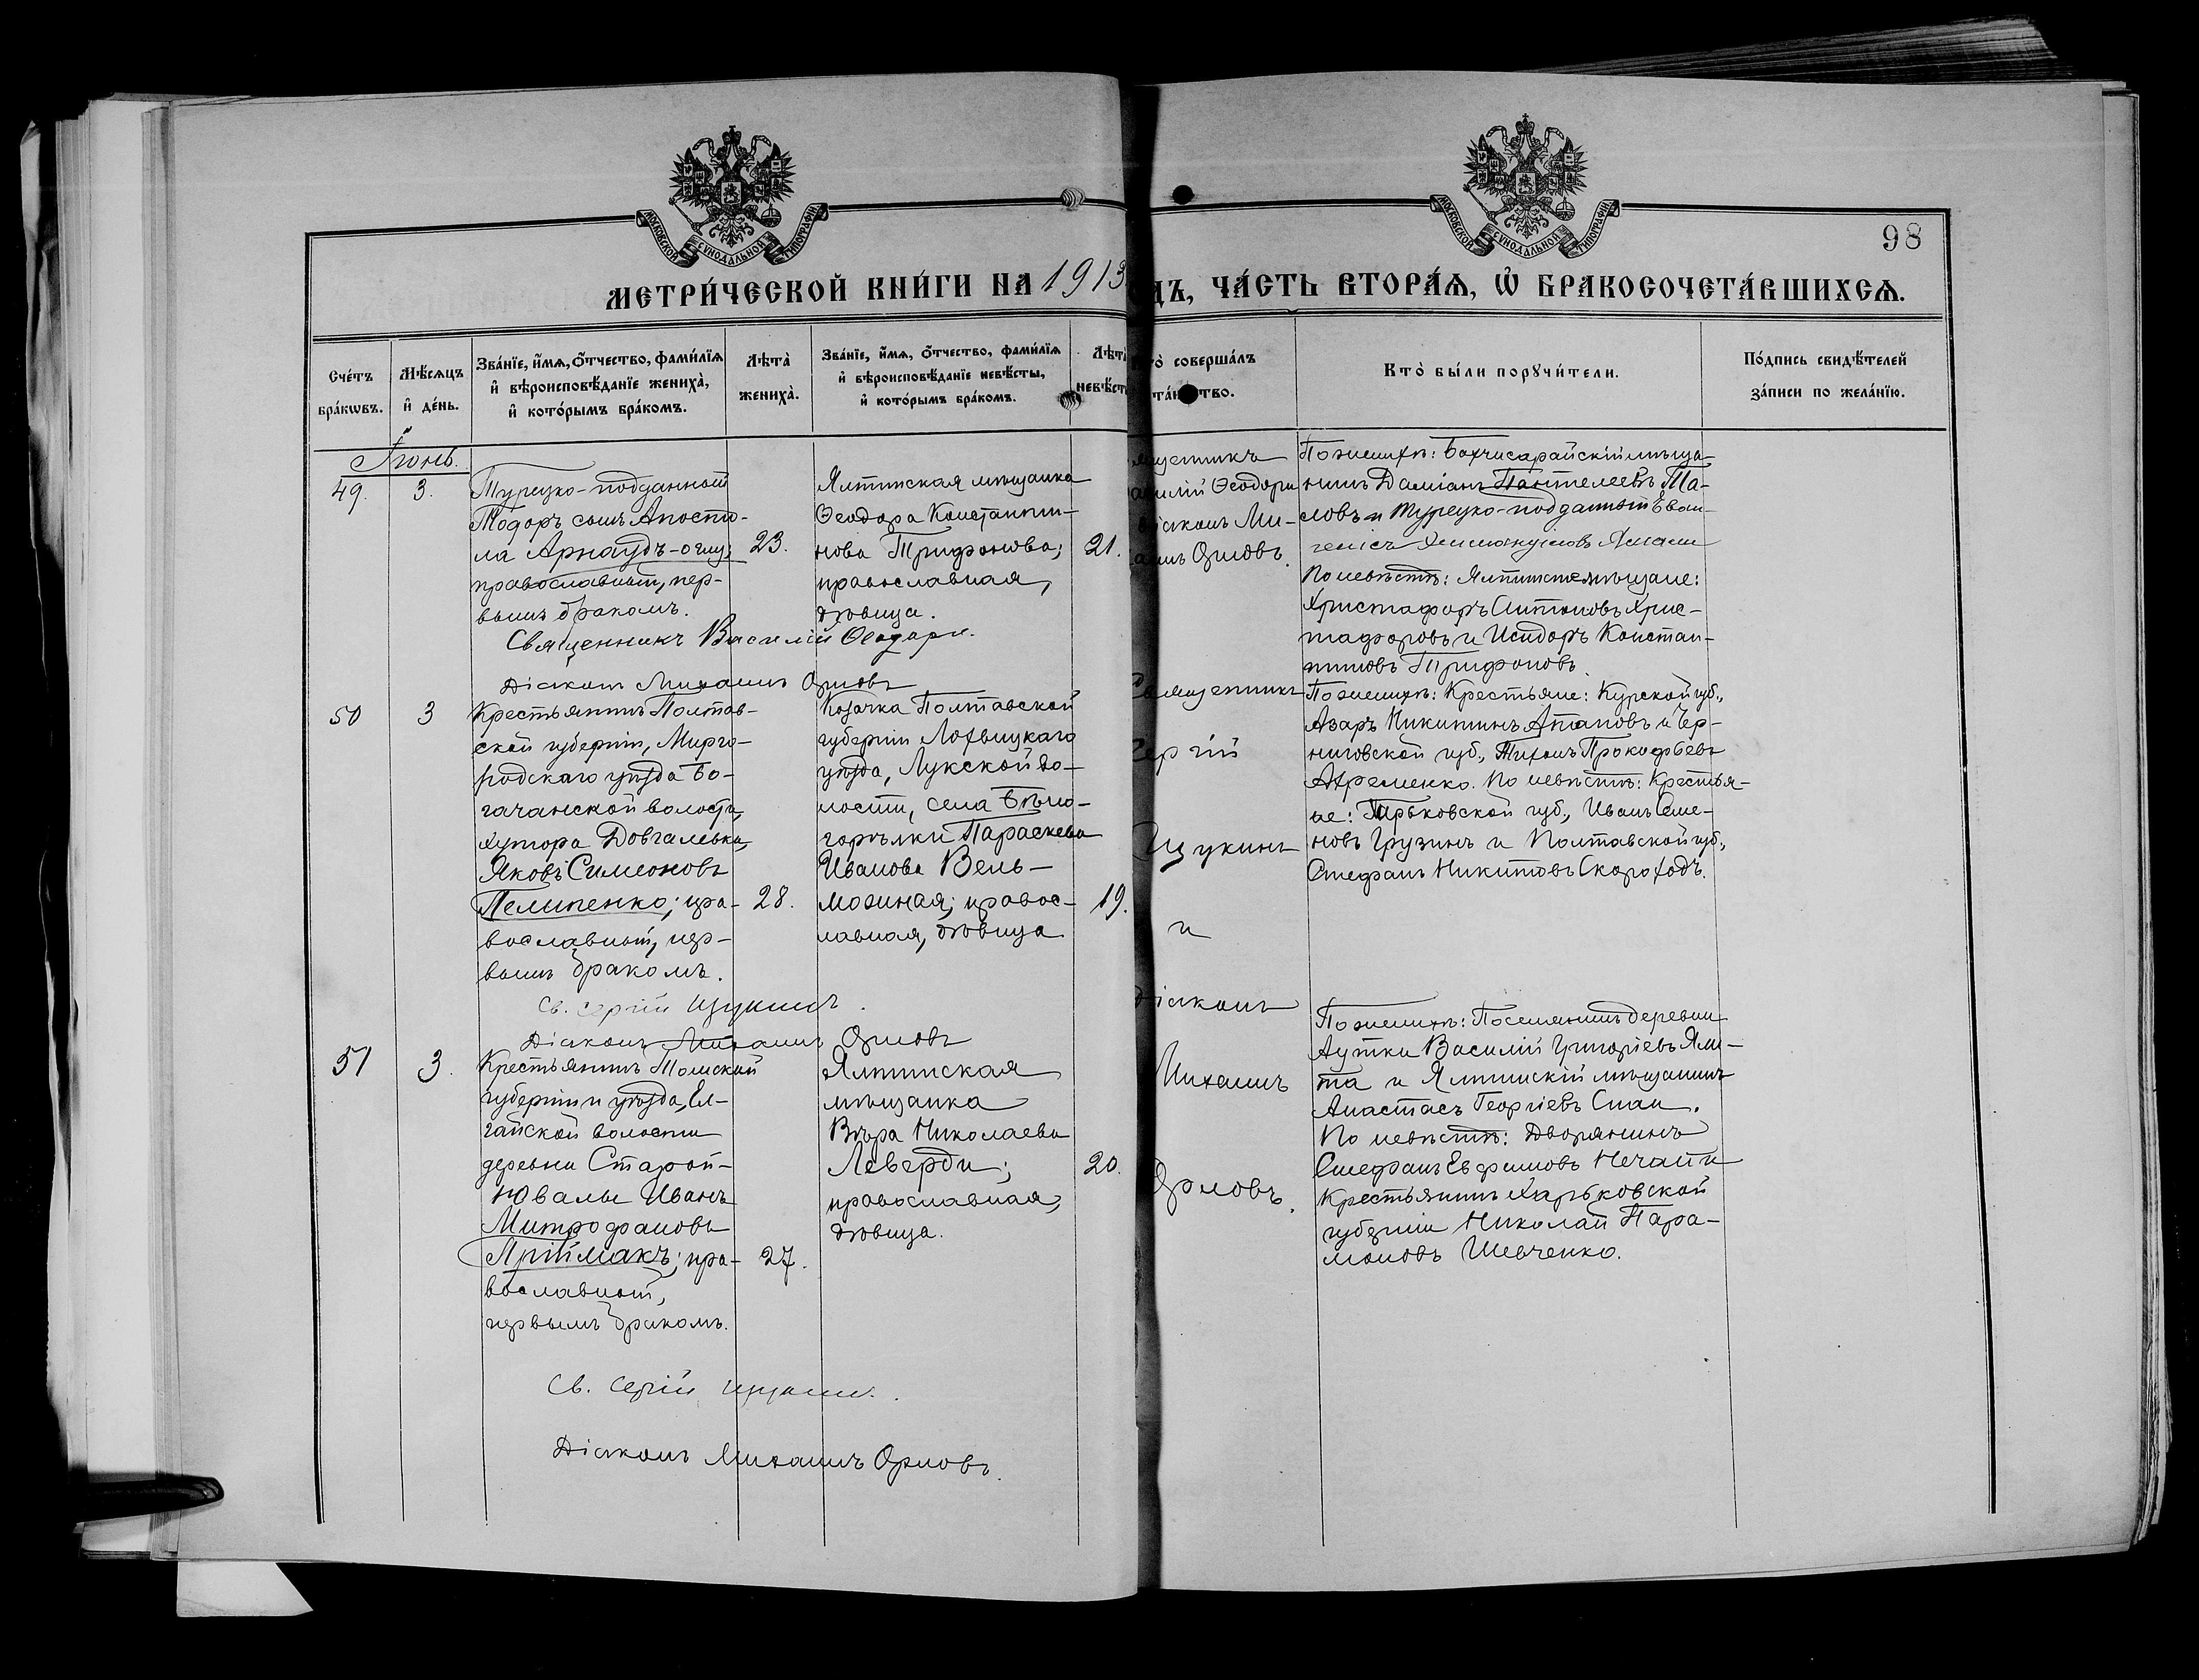 МОСКОВСКОЙ СѴНОДАЛЬНОЙ ТИПОГРАФІИ
МОСКОВСКОЙ СѴНОДАЛЬНОЙ ТИПОГРАФІИ
98
МЕТРИ́ЧЕСКОЙ КНИ́ГИ НА 1913
ДЪ, ЧА́СТЬ ВТОРА́Ѧ, Ѽ БРАКОСОЧЕТА́ВШИХСѦ.
Сче́тъ бра́кѡвъ.
Мѣ́сяцъ и҆ де́нь.
Зва́нїе, и҆́мѧ, ѻ҆́тчество, фами́лїѧ
и҆ вѣроисповѣ́данїе жениха̀,
и҆ кото́рымъ бра́комъ.
Лѣта̀
жениха̀.
Зва́нїе, и҆́мѧ, ѻ҆́тчество, фами́лїѧ
и҆ вѣроисповѣ́данїе невѣ́сты,
и҆ кото́рымъ бра́комъ.
Лѣта̀
невѣ́ст
то̀ соверша́лъ
та́нство.
Кто̀ бы́ли порꙋчи́тели.
По́дпись свидѣ́телей
за́писи по жела́нїю.
Іюнь.
49.
3.
Турецко-подданный
Тодоръ сынъ Апосто-
ла Арнаудъ-оглу;
православный, пер-
вымъ бракомъ.
23.
Ялтинская мѣщанка
Ѳеодора Константи-
нова Трифонова;
православная,
дѣвица.
21.
ященникъ
асилій Ѳеодори
діаконъ Ми-
аилъ Орловъ.
По женихѣ: Бахчисарайскій мѣща-
нинъ Даміанъ Пантелеевъ Та-
словъ и Турецко-подданный Еван-
По невѣстѣ: Ялтинскіе мѣщане:
Христафоръ Антоновъ Хрис-
тафоровъ и Исидоръ Констан-
тиновъ Трифоновъ.
Священникъ Василій Ѳеодори.
Діаконъ Михаилъ Орловъ
50
3
Крестьянинъ Полтав-
ской губерніи, Мирго-
родскаго уѣзда Бо-
гачанской волости,
хутора Довгалевки,
Яковъ Симеоновъ
Пелипенко; пра-
вославный, пер-
вымъ бракомъ.
28.
Козачка Полтавской
губерніи Лохвицкаго
уѣзда, Лукской во-
лости, села Бѣло-
горѣлки Параскева
Иванова Вель-
можная; правос-
лавная, дѣвица
19.
Священникъ
Сергій
Щукинъ
и
діаконъ
Михаилъ
Орловъ.
По женихѣ: Крестьяне: Курской губ.,
Азаръ Никитинъ Агаповъ и Чер-
ниговской губ., Тихонъ Прокофьевъ
Ахременко. По невѣстѣ: Крестья-
не: Харьковской губ., Иванъ Семе-
новъ Грузинъ и Полтавской губ.,
Стефанъ Никитовъ Скороходъ.
Св. Сергій Щукинъ.
Діаконъ Михаилъ Орловъ
51
3.
Крестьянинъ Томской
губерніи и уѣзда, Ел-
гайской волости
деревни Старой-
Ювалы Иванъ
Митрофановъ
Пріймакъ; пра-
вославный,
первымъ бракомъ.
27.
Ялтинская
мѣщанка
Вѣра Николаева
Леверди;
православная,
дѣвица.
20.
По женихѣ: Поселянинъ деревни
Аутки Василій Григоріевъ Яли-
та и Ялтинскій мѣщанинъ
Анастасъ Георгіевъ Спаи.
По невѣстѣ: Дворянинъ
Стефанъ Евфимовъ Нечай и
Крестьянинъ Харьковской
губерніи Николай Пара-
моновъ Шевченко.
Св. Сергій Щукинъ.
Діаконъ Михаилъ Орловъ.